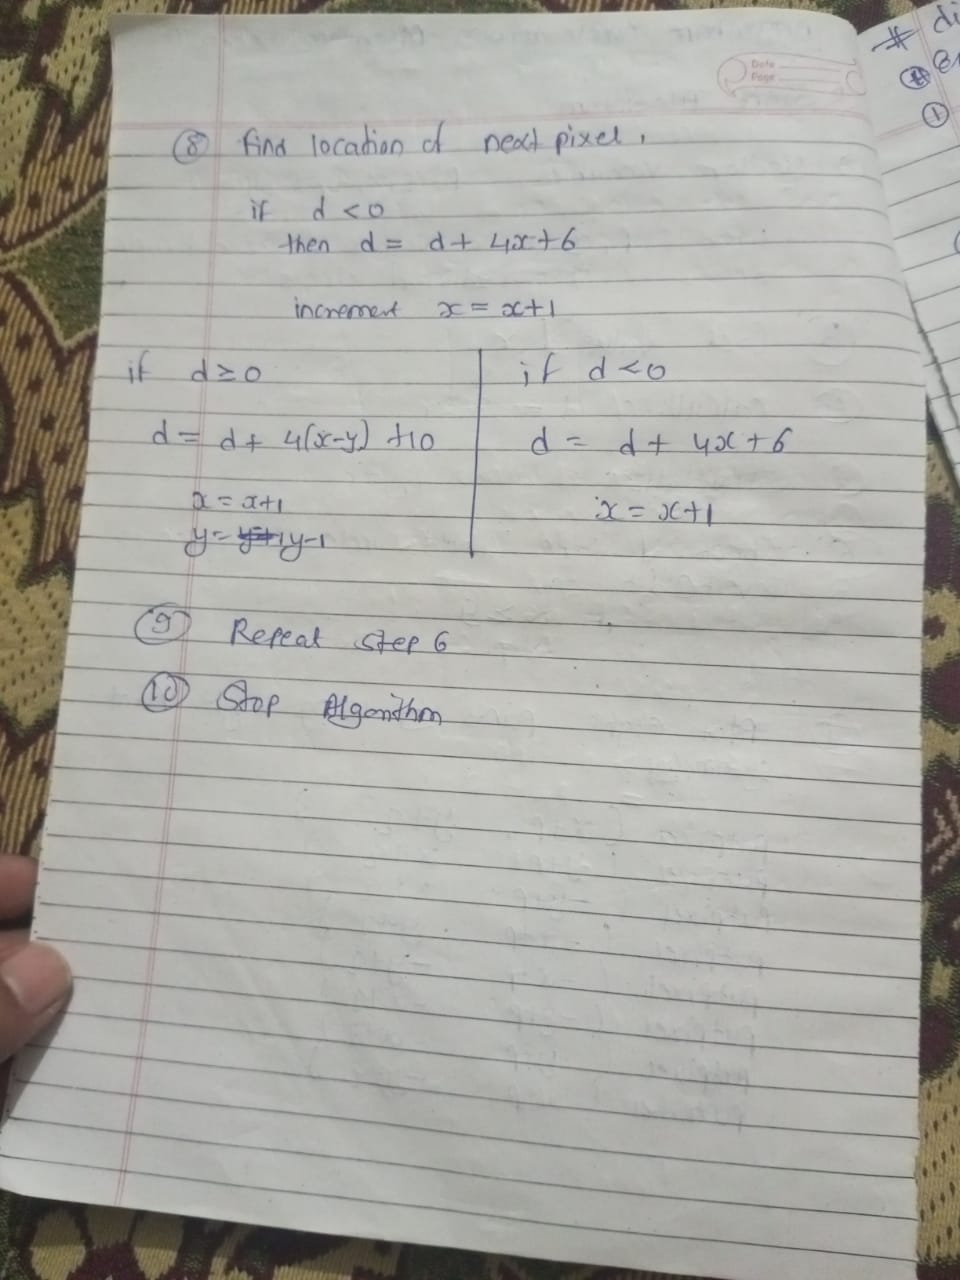 Date
Page
⑧ find location of next pixel.
if d < 0
then d = d + 4x + 6
increment x = x + 1
if d ≥ 0
d = d + 4(x-y) + 10
x = x+1
y = y-1
if d < 0
d = d + 4x + 6
x = x+1
⑨ Repeat step 6
⑩ Stop Algorithm
#
①